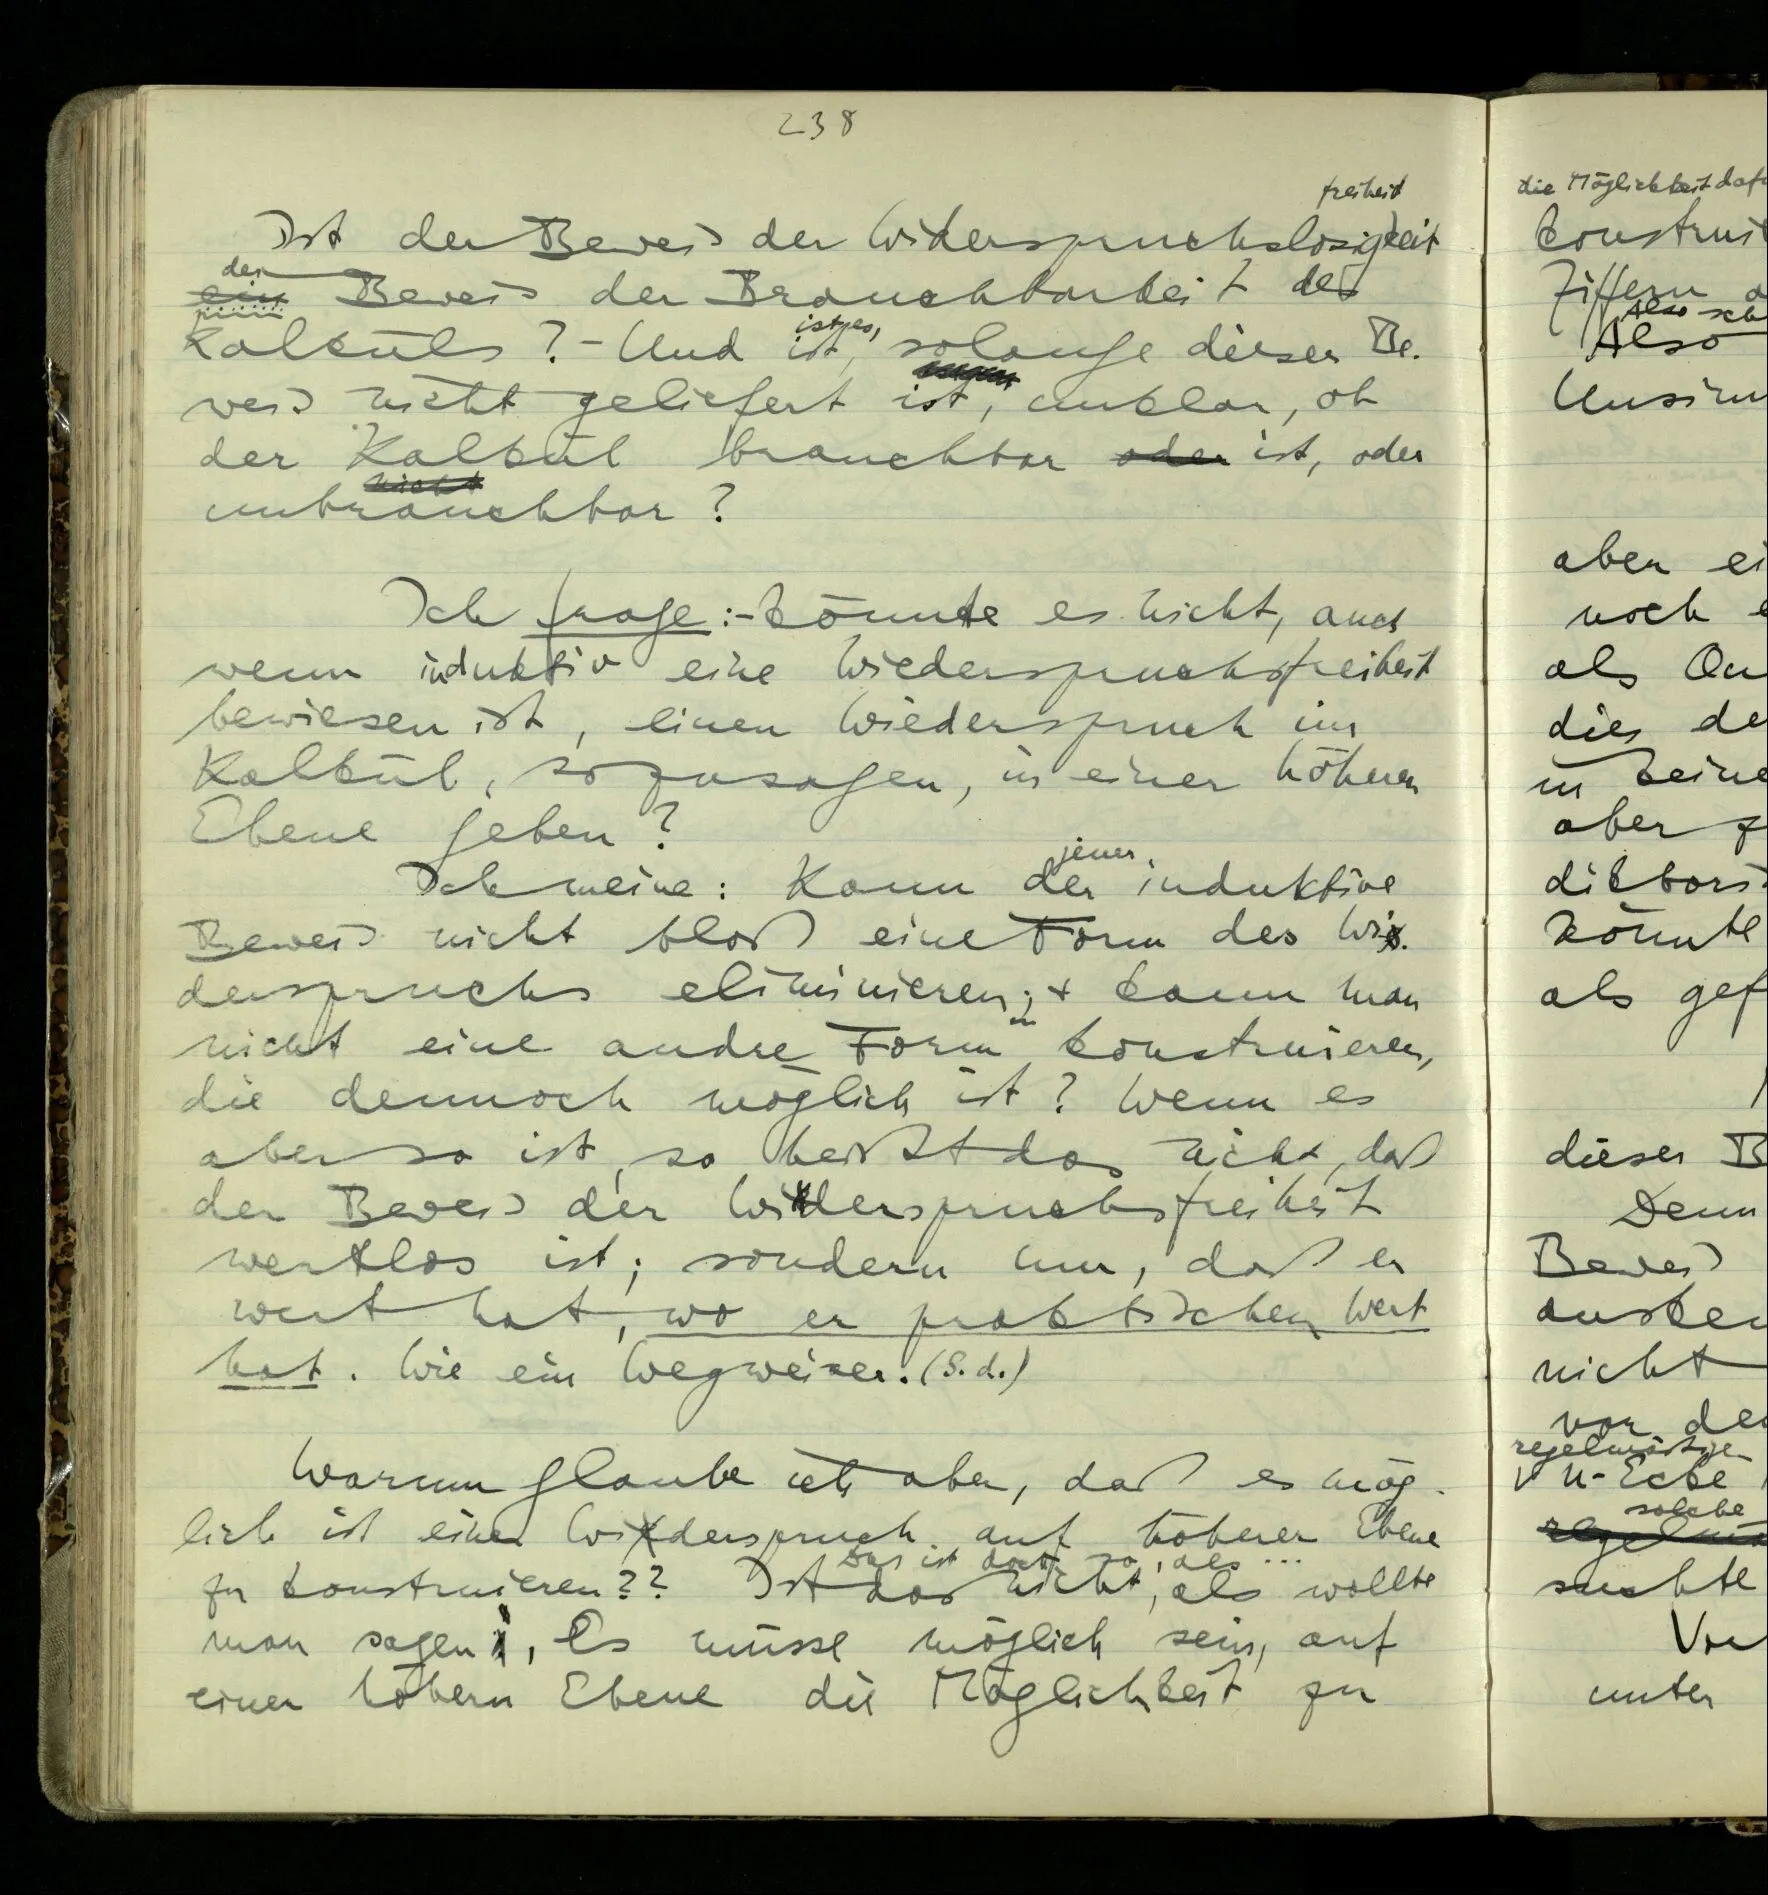 238
freiheit
Ist der Beweis der Widerspruchslosigkeit
der
ein Beweis der Brauchbarkeit des
ist es,
Kalküls? – Und ist, solange dieser Be-
weis nicht geliefert ist, unklar, ob
der Kalkül brauchbar oder ist, oder
nicht
unbrauchbar?
Ich frage: – könnte es nicht, auch
wenn induktiv eine Wiederspruchsfreiheit
bewiesen ist, einen Wiederspruch im
Kalkül, sozusagen, in einer höheren
Ebene geben?
jener
Ich meine: Kann der induktive
Beweis nicht bloß eine Form des Wi-
derspruchs eliminieren; + kann man
nicht eine andre Form konstruieren,
die dennoch möglich ist? Wenn es
aber so ist, so heißt das nicht, daß
der Beweis der Widerspruchsfreiheit
wertlos ist; sondern nur, daß er
wert hat, wo er praktischen Wert
hat. Wie ein Wegweiser. (S.d.)
Warum glaube ich aber, daß es mög-
lich ist einen Widerspruch auf höherer Ebene
Das ist doch so, als ...
zu konstruieren?? Ist das nicht, als wollte
man sagen, Es müsse möglich sein, auf
einer höhern Ebene die Möglichkeit zu
die Möglichkeit dafü
konstrui
Ziffern a
Also sch
Also
Unsinn
aber ei
noch e
als
dies de
in keine
aber z
könnte
als gef
dieser B
Denn
Beweis
nicht
von de
regelmäßige
n-Ecke
solche
regelmä
suchte
unter